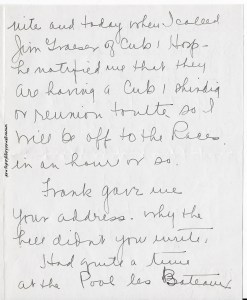 nite and today when I called
Jim Traeser of Cub 1 Hosp-
he notified me that they
are having a Cub 1 shindig
or reunion tonite so I
will be off to the Races
in an hour or so.
Frank gave me
your address. Why the
hell didn't you write.
Had quite a time
at the Pool las Bateaux